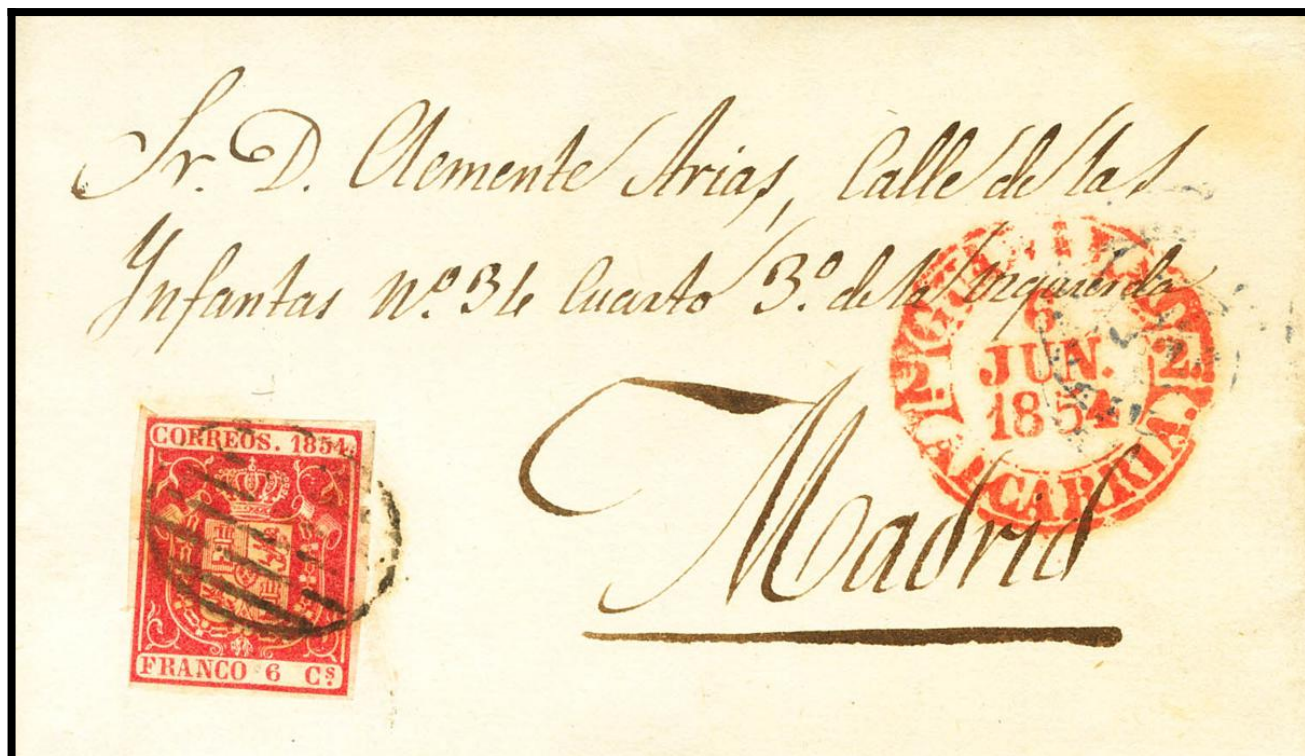 Sr. D. Clemente Arias, Calle de las
Infantas nº. 34 Cuarto 3º. de la Izquierda
Madrid
6
JUN.
1854
2
ALCARRIA.
CORREOS. 1854.
FRANCO 6 Cs